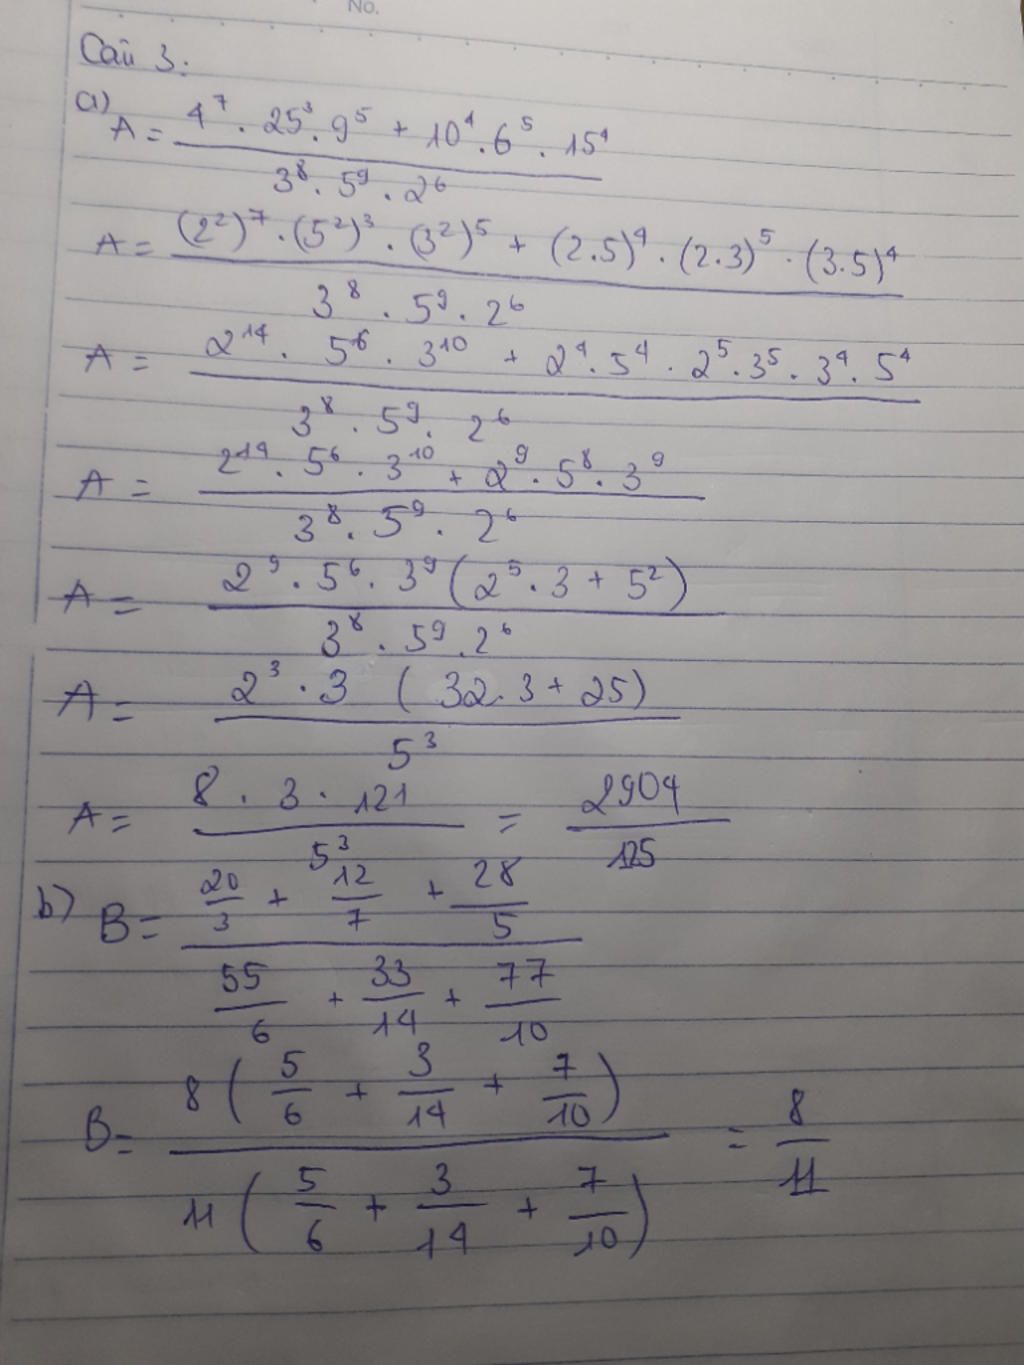 No.
Câu 3:
a) A = (4^7 . 25^3 . 9^5 + 10^4 . 6^5 . 15^4) / (3^8 . 5^9 . 2^6)
A = ((2^2)^7 . (5^2)^3 . (3^2)^5 + (2.5)^4 . (2.3)^5 . (3.5)^4) / (3^8 . 5^9 . 2^6)
A = (2^14 . 5^6 . 3^10 + 2^4 . 5^4 . 2^5 . 3^5 . 3^4 . 5^4) / (3^8 . 5^9 . 2^6)
A = (2^14 . 5^6 . 3^10 + 2^9 . 5^8 . 3^9) / (3^8 . 5^9 . 2^6)
A = (2^9 . 5^6 . 3^9 (2^5 . 3 + 5^2)) / (3^8 . 5^9 . 2^6)
A = (2^3 . 3 (32 . 3 + 25)) / 5^3
A = (8 . 3 . 121) / 5^3 = 2904/125
b) B = (20/3 + 12/7 + 28/5) / (55/6 + 33/14 + 77/10)
B = (8 (5/6 + 3/14 + 7/10)) / (11 (5/6 + 3/14 + 7/10)) = 8/11